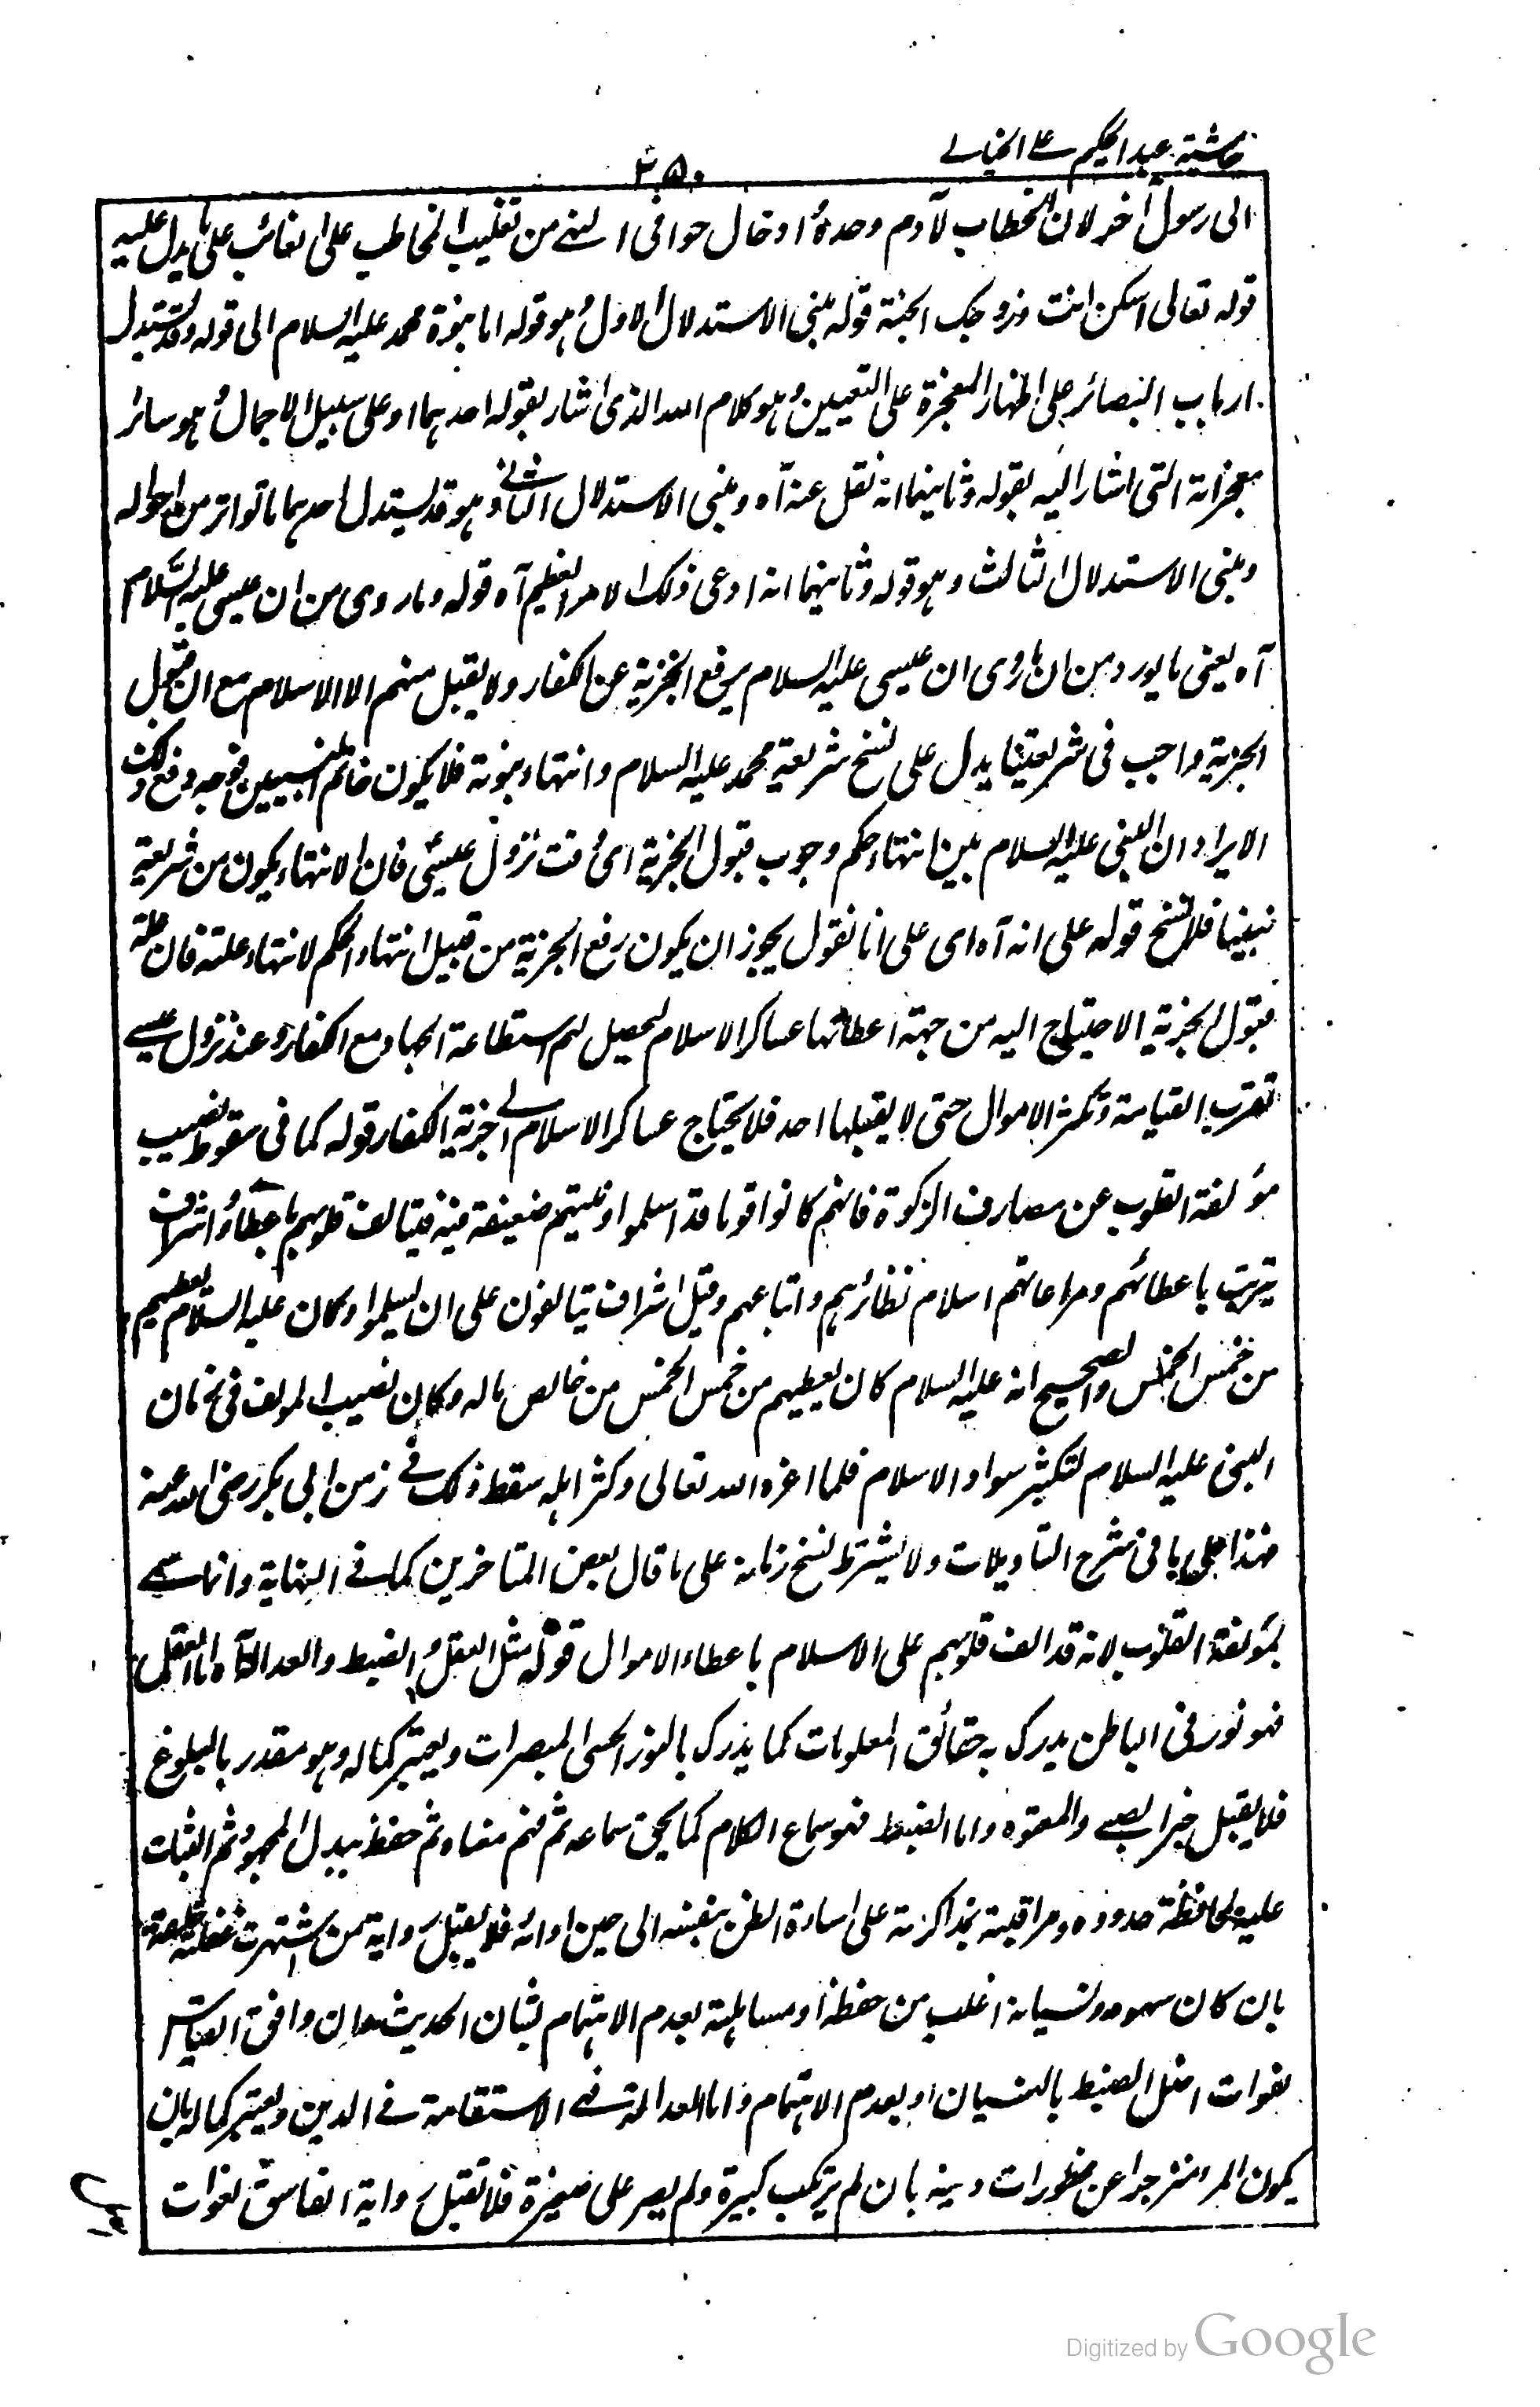 حاشية عبد الحكيم على الخيالى
٢٥٠
الى رسول آخر لان الخطاب لآدم وحده وادخال حوا فى النهى من تغليب المخاطب على الغائب على ما يدل عليه
قوله تعالى اسكن انت وزوجك الجنة قوله مبنى الاستدلال الاول وهو قوله اما نبوة محمد عليه السلام الى قوله وقد يستدل
ارباب البصائر على اظهار المعجزة على التعيين وهو كلام الله الذى اشار بقوله احدهما او على سبيل الاجمال وهو سائر
معجزاته التى اشار اليه بقوله وثانيهما انه نقل عنه آه ومبنى الاستدلال الثانى وهو قد يستدل احدهما ما تواتر من احواله
ومبنى الاستدلال الثالث وهو قوله وثانيهما انه ادعى ذلك الامر العظيم آه قوله وما روى من ان عيسى عليه السلام
آه يعنى ما يورد من ان ما روى ان عيسى عليه السلام يرفع الجزية عن الكفار ولا يقبل منهم الا الاسلام مع ان قبول
الجزية واجب فى شريعتنا يدل على نسخ شريعة محمد عليه السلام وانتهاء نبوته فلا يكون خاتم النبيين فوجه دفع ذلك
الايراد ان النبى عليه السلام بين انتهاء حكم وجوب قبول الجزية الى وقت نزول عيسى فان الانتهاء يكون من شريعة
نبينا فلا نسخ قوله على انه آه اى على انا نقول يجوز ان يكون رفع الجزية من قبيل انتهاء الحكم لانتهاء علته فان علة
قبول الجزية الاحتياج اليه من جهة اعطائها عساكر الاسلام ليحصل لهم استطاعة الجهاد مع الكفار وعند نزول عيسى
تقرب القيامة وتكثر الاموال حتى لا يقبلها احد فلا يحتاج عساكر الاسلام الى جزية الكفار قوله كما فى سقوط نصيب
مؤلفة القلوب عن مصارف الزكوة فانهم كانوا قوما قد اسلموا ونيتهم ضعيفة فيه فيتالف قلوبهم باعطاء او اشراف
يترتب باعطائهم ومراعاتهم اسلام نظائرهم واتباعهم وقيل اشراف يتالفون على ان يسلموا وكان عليه السلام يعطيهم
من خمس الخمس والصحيح انه عليه السلام كان يعطيهم من خمس الخمس من خالص ماله وكان نصيب المولفة فى زمان
النبى عليه السلام لتكثير سواد الاسلام فلما اعزه الله تعالى وكثر اهله سقط ذلك فى زمن ابى بكر رضى الله عنه
هذا على ما فى شرح التاويلات ولا يشترط نسخ زمانه على ما قال بعض المتاخرين كما فى النهاية وانما سمى
بمؤلفة القلوب لانه قد الف قلوبهم على الاسلام باعطاء الاموال قوله مثل العقل والضبط والعدالة آه اما العقل
فهو نور فى الباطن يدرك به حقائق المعلومات كما يدرك بالنور الحسى المبصرات ويعتبر كماله وهو مقدر بالبلوغ
فلا يقبل خبر الصبى والمعتوه واما الضبط فهو سماع الكلام كما يحق سماعه ثم فهم معناه ثم حفظ ببذل المجهود ثم الثبات
عليه لمحافظة حدوده ومراقبته بمذاكرته على اساءة الظن بنفسه الى حين ادائه فلا يقبل رواية من اشتهرت غفلته خلقة
بان كان سهوه ونسيانه اغلب من حفظه او مساهلته بعدم الاهتمام بشان الحديث وان وافق القياس
لفوات اصل الضبط بالنسيان او بعدم الاهتمام واما العدالة فهى الاستقامة فى الدين ويعتبر كماله بان
يكون المرء منزجرا عن محظورات دينه بان لم يرتكب كبيرة ولم يصر على صغيرة فلا تقبل رواية الفاسق لفوات
Digitized by Google